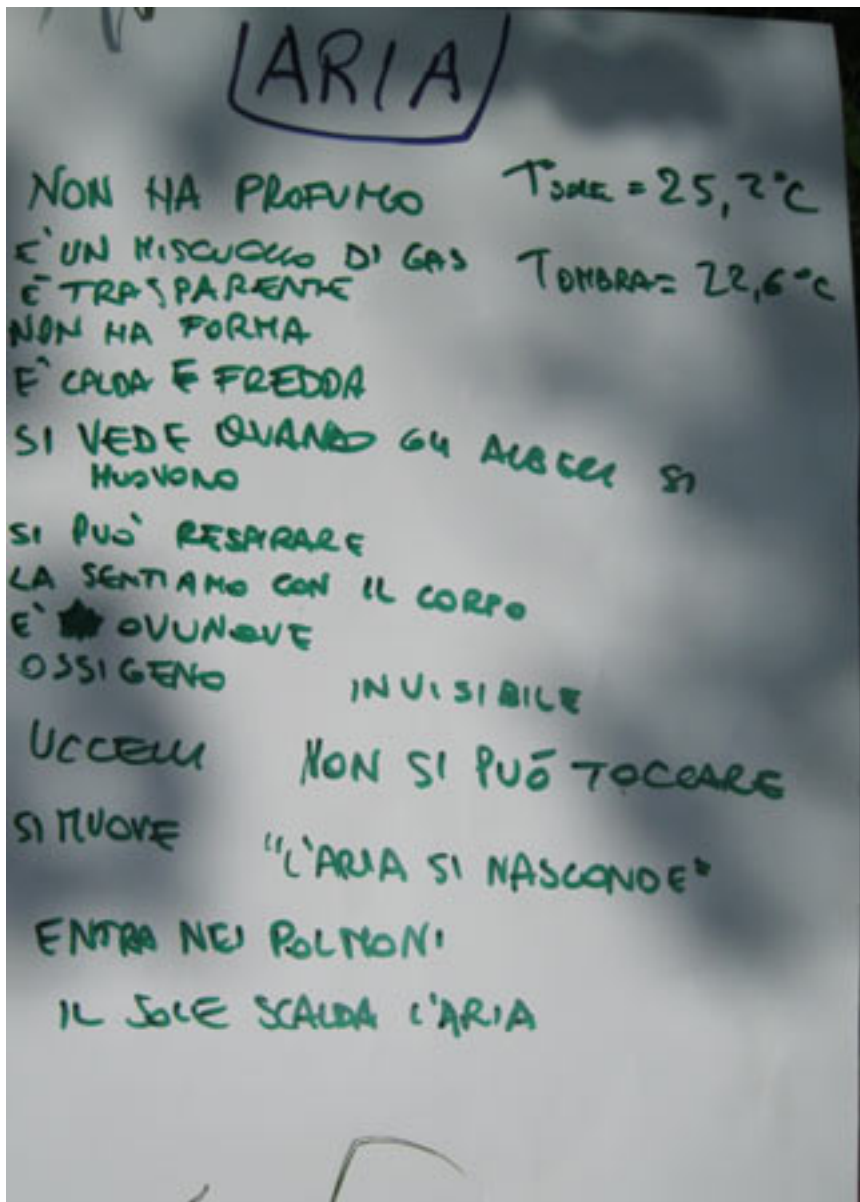 ARIA
NON HA PROFUMO
T SOLE = 25,2°C
E' UN MISCUGLIO DI GAS
T OMBRA = 22,6°C
È TRASPARENTE
NON HA FORMA
E' CALDA E FREDDA
SI VEDE QUANDO GLI ALBERI SI
MUOVONO
SI PUÒ RESPIRARE
LA SENTIAMO CON IL CORPO
E' OVUNQUE
OSSIGENO
INVISIBILE
UCCELLI
NON SI PUÒ TOCCARE
SI MUOVE
"L'ARIA SI NASCONDE"
ENTRA NEI POLMONI
IL SOLE SCALDA L'ARIA